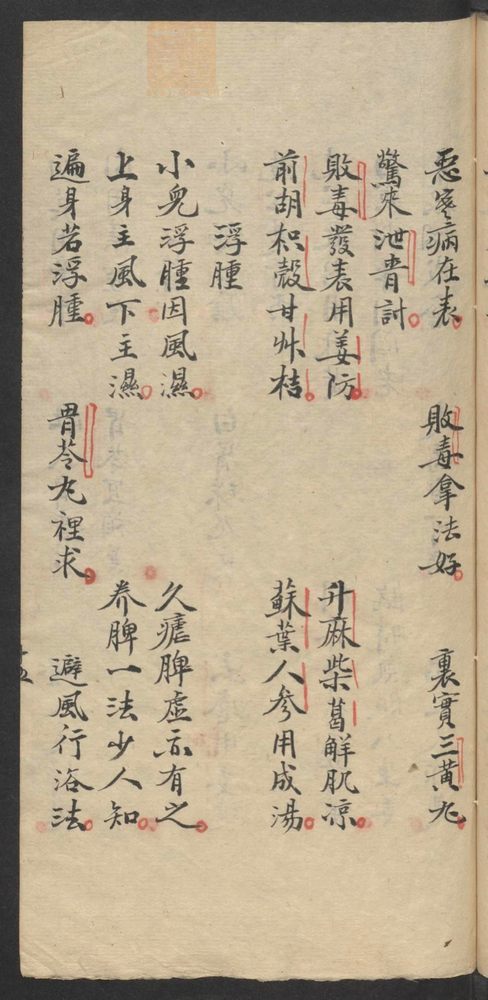 惡寒病在表 敗毒拿法好 裏實三黃丸
驚來泄青討
敗毒發表用姜防 升麻柴葛觧肌凉
前胡枳殼甘艸桔 蘇葉人参用成湯
浮腫
小兒浮腫因風濕 久瘧脾虛亦有之
上身主風下主濕 养脾一法少人知
遍身若浮腫 胃苓丸裡求 避風行浴法